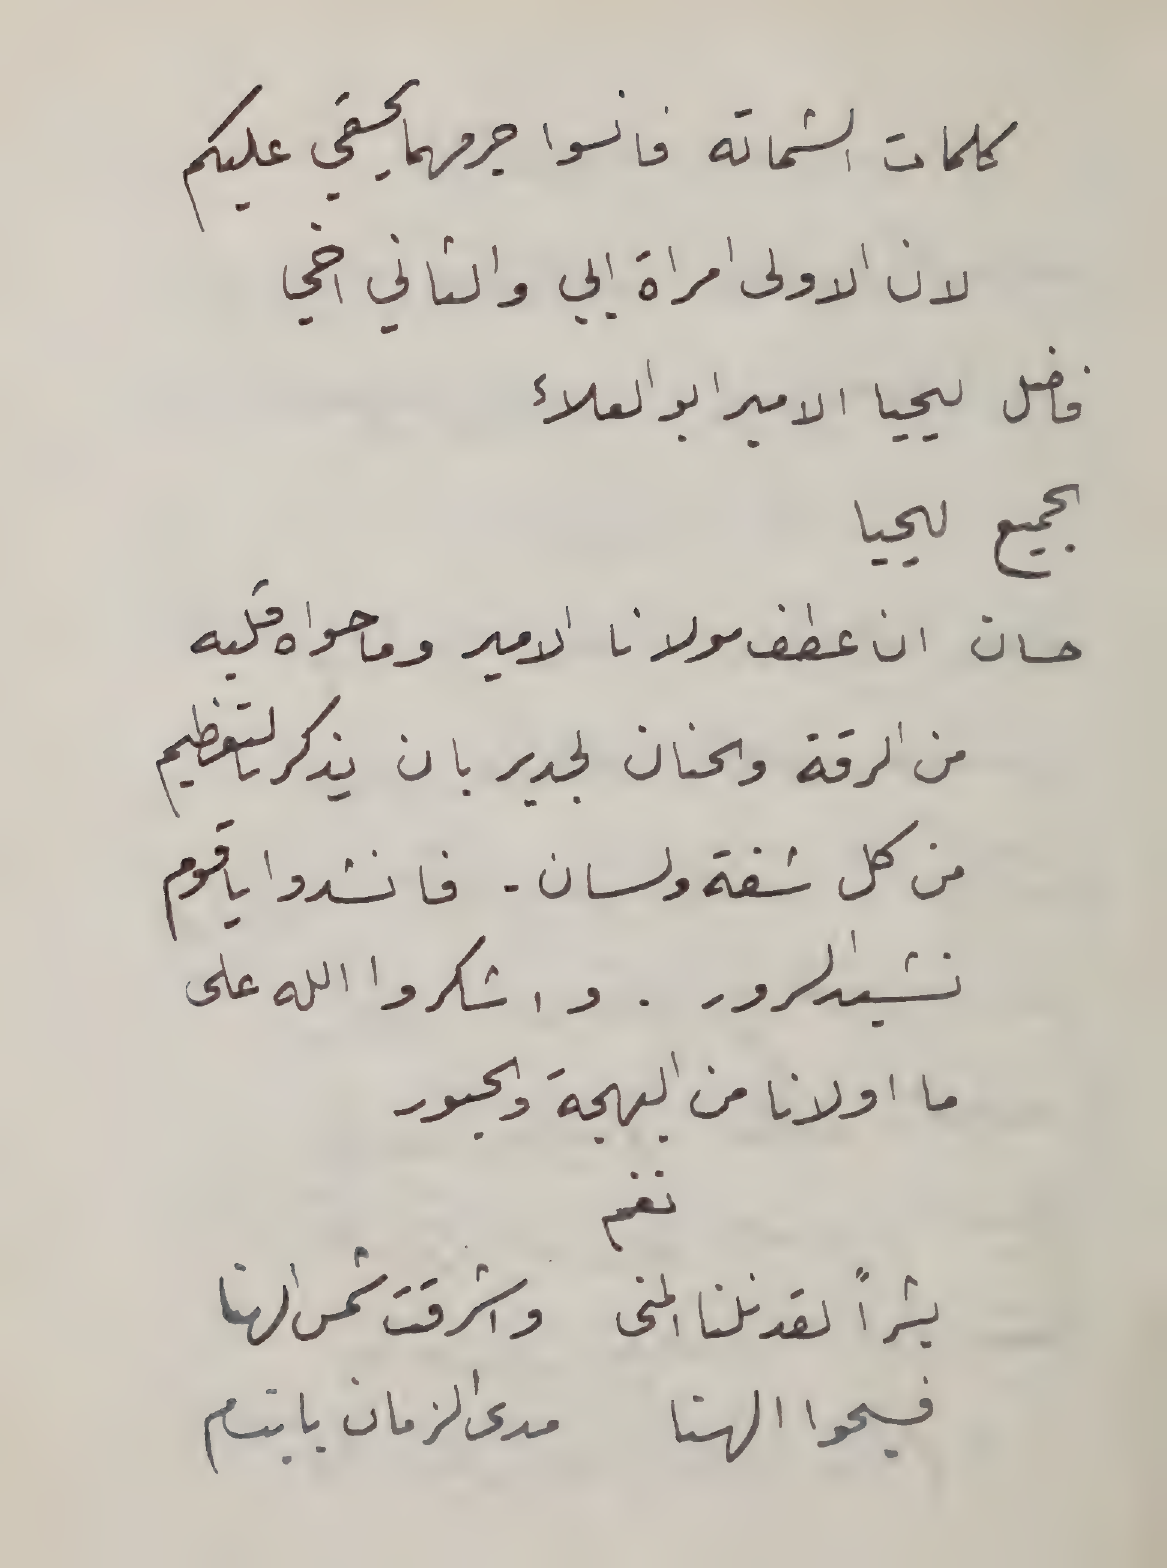 كلمات الشماته فانسوا جرمهما بحقي عليكم
لان الاولى امراة ابي والثاني اخي
فاضل ليحيا الامير ابو العلاء
الجميع ليحيا
حسان ان عطف مولانا الامير وما حواه قلبه
من الرقة والحنان لجدير بان يذكر بالتعظيم
من كل شفة ولسان - فانشدوا يا قوم
نشيد السرور . واشكروا الله على
ما اولانا من البهجة والحبور
نغم
بشراً لقد نلنا المنى واشرقت شمس الهنا
فسبحوا الهنا مدى الزمان بابتسام